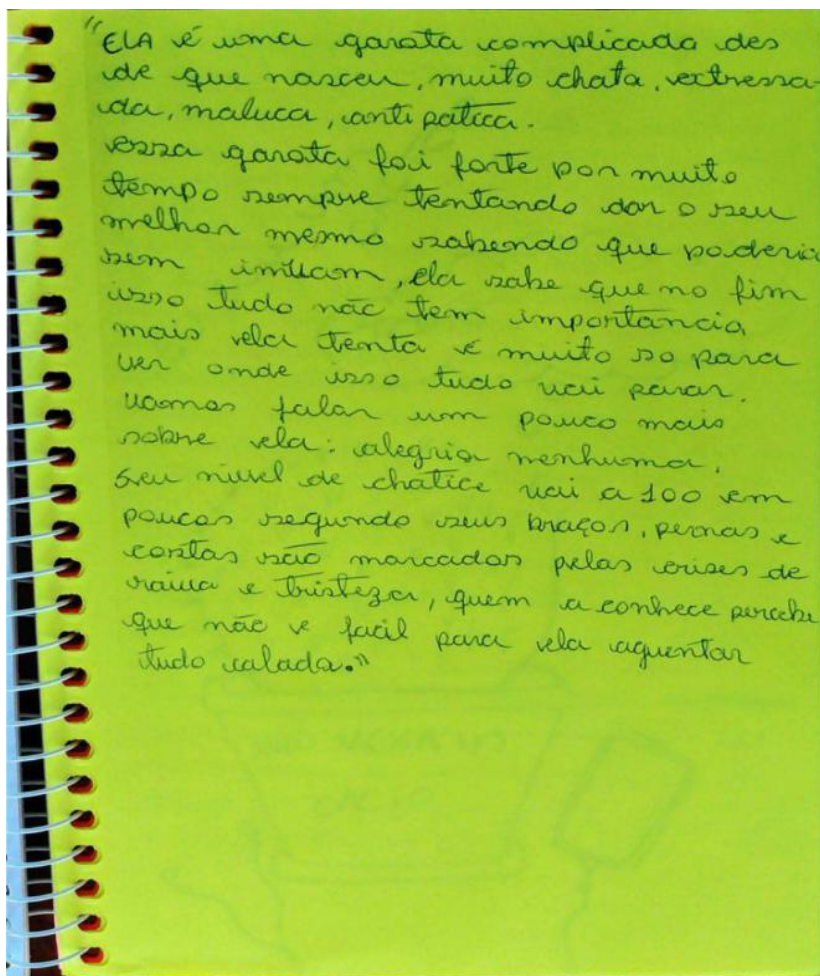 "ELA é uma garota complicada des
de que nasceu, muito chata, extressa-
da, maluca, anti patica.
essa garota foi forte por muito
tempo sempre tentando dar o seu
melhor mesmo sabendo que poderia
sem, ela sabe que no fim
isso tudo não tem importancia
mais ela tenta e muito so para
ver onde isso tudo vai parar.
vamos falar um pouco mais
sobre ela: alegria nenhuma,
seu nivel de chatice vai a 100 em
poucos segundo seus braços, pernas e
costas são marcados pelas crises de
raiva e tristeza, quem a conhece percebe
que não e facil para ela aguentar
tudo calada."